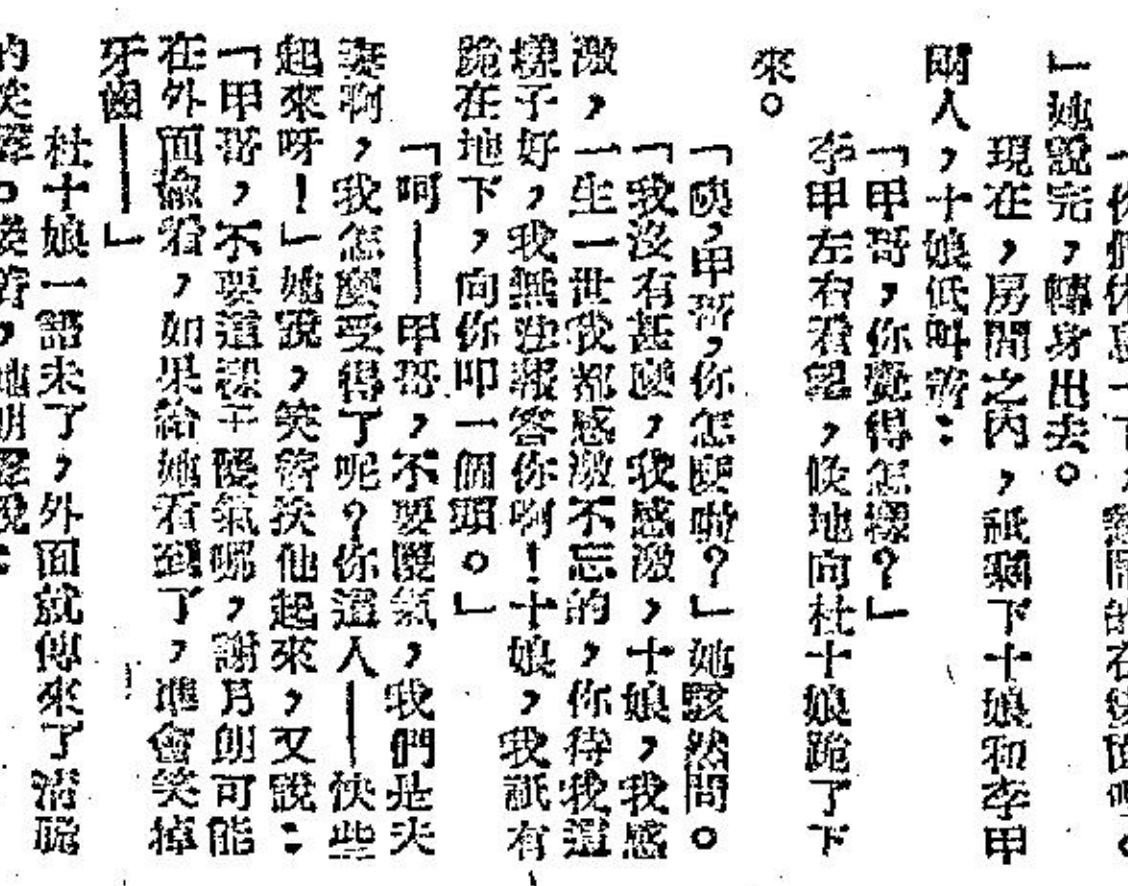 」她說完,轉身出去。
現在,房間之內,祇剩下十娘和李甲
兩人,十娘低叫着:
「甲哥,你覺得怎樣?」
李甲左右看望,倏地向杜十娘跪了下
來。
「唉,甲哥,你怎麼啦?」她駭然問。
「我沒有甚麼,我感激,十娘,我感
激,一生一世我都感激不忘的,你待我這
樣子好,我無法報答你啊!十娘,我祇有
跪在地下,向你叩一個頭。」
「呵——甲哥,不要儍氣,我們是夫
妻啊,我怎麼受得了呢?你這人——快些
起來呀!」她說,笑着扶他起來,又說:
「甲哥,不要這樣子儍氣呢,謝月朗可能
在外面偸看,如果給她看到了,準會笑掉
牙齒——」
杜十娘一語未了,外面就傳來了清脆
的笑聲。笑着,她朗聲說: